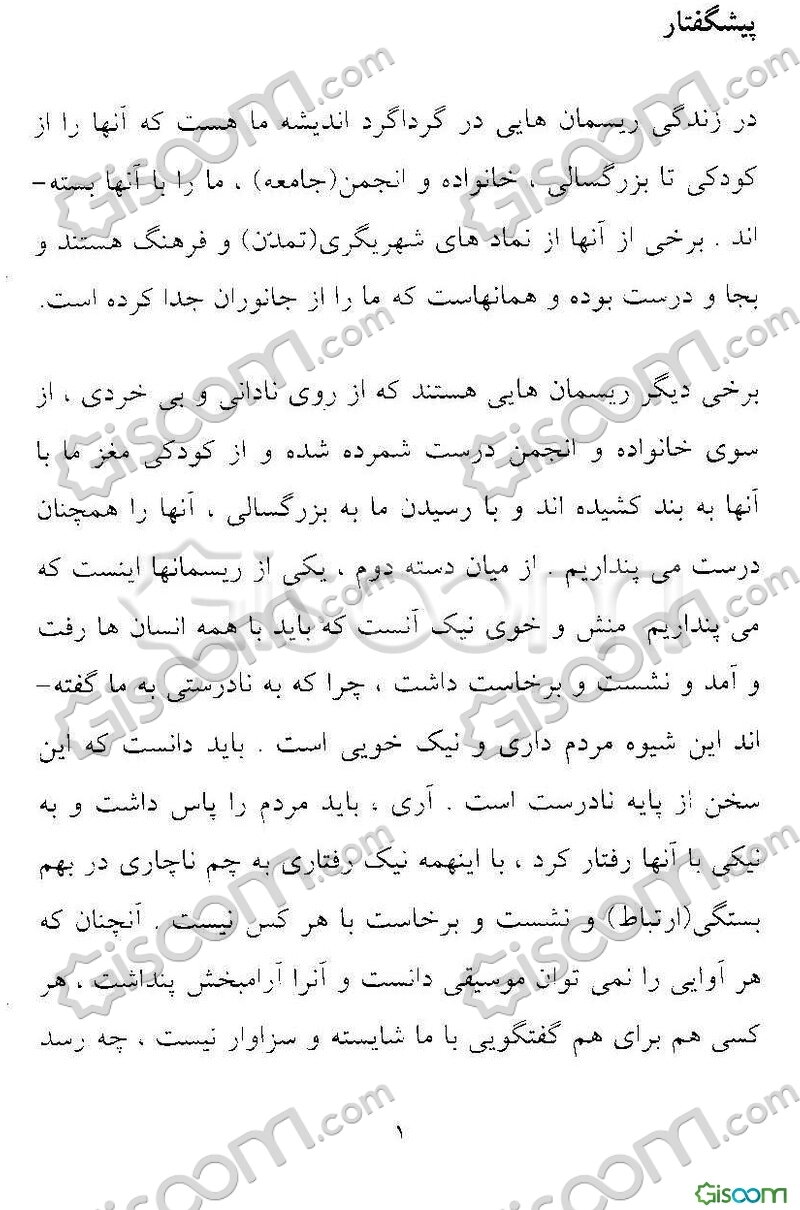 پیشگفتار
در زندگی ریسمان هایی در گرداگرد اندیشه ما هست که آنها را از
کودکی تا بزرگسالی ، خانواده و انجمن(جامعه) ، ما را با آنها بسته-
اند . برخی از آنها از نماد های شهریگری(تمدّن) و فرهنگ هستند و
بجا و درست بوده و همانهاست که ما را از جانوران جدا کرده است.
برخی دیگر ریسمان هایی هستند که از روی نادانی و بی خردی ، از
سوی خانواده و انجمن درست شمرده شده و از کودکی مغز ما با
آنها به بند کشیده اند و با رسیدن ما به بزرگسالی ، آنها را همچنان
درست می پنداریم . از میان دسته دوم ، یکی از ریسمانها اینست که
می پنداریم منش و خوی نیک آنست که باید با همه انسان ها رفت
و آمد و نشست و برخاست داشت ، چرا که به نادرستی به ما گفته-
اند این شیوه مردم داری و نیک خویی است . باید دانست که این
سخن از پایه نادرست است . آری ، باید مردم را پاس داشت و به
نیکی با آنها رفتار کرد ، با اینهمه نیک رفتاری به چم ناچاری در بهم
بستگی(ارتباط) و نشست و برخاست با هر کس نیست . آنچنان که
هر آوایی را نمی توان موسیقی دانست و آنرا آرامبخش پنداشت ، هر
کسی هم برای هم گفتگویی با ما شایسته و سزاوار نیست ، چه رسد
۱
Gisoom